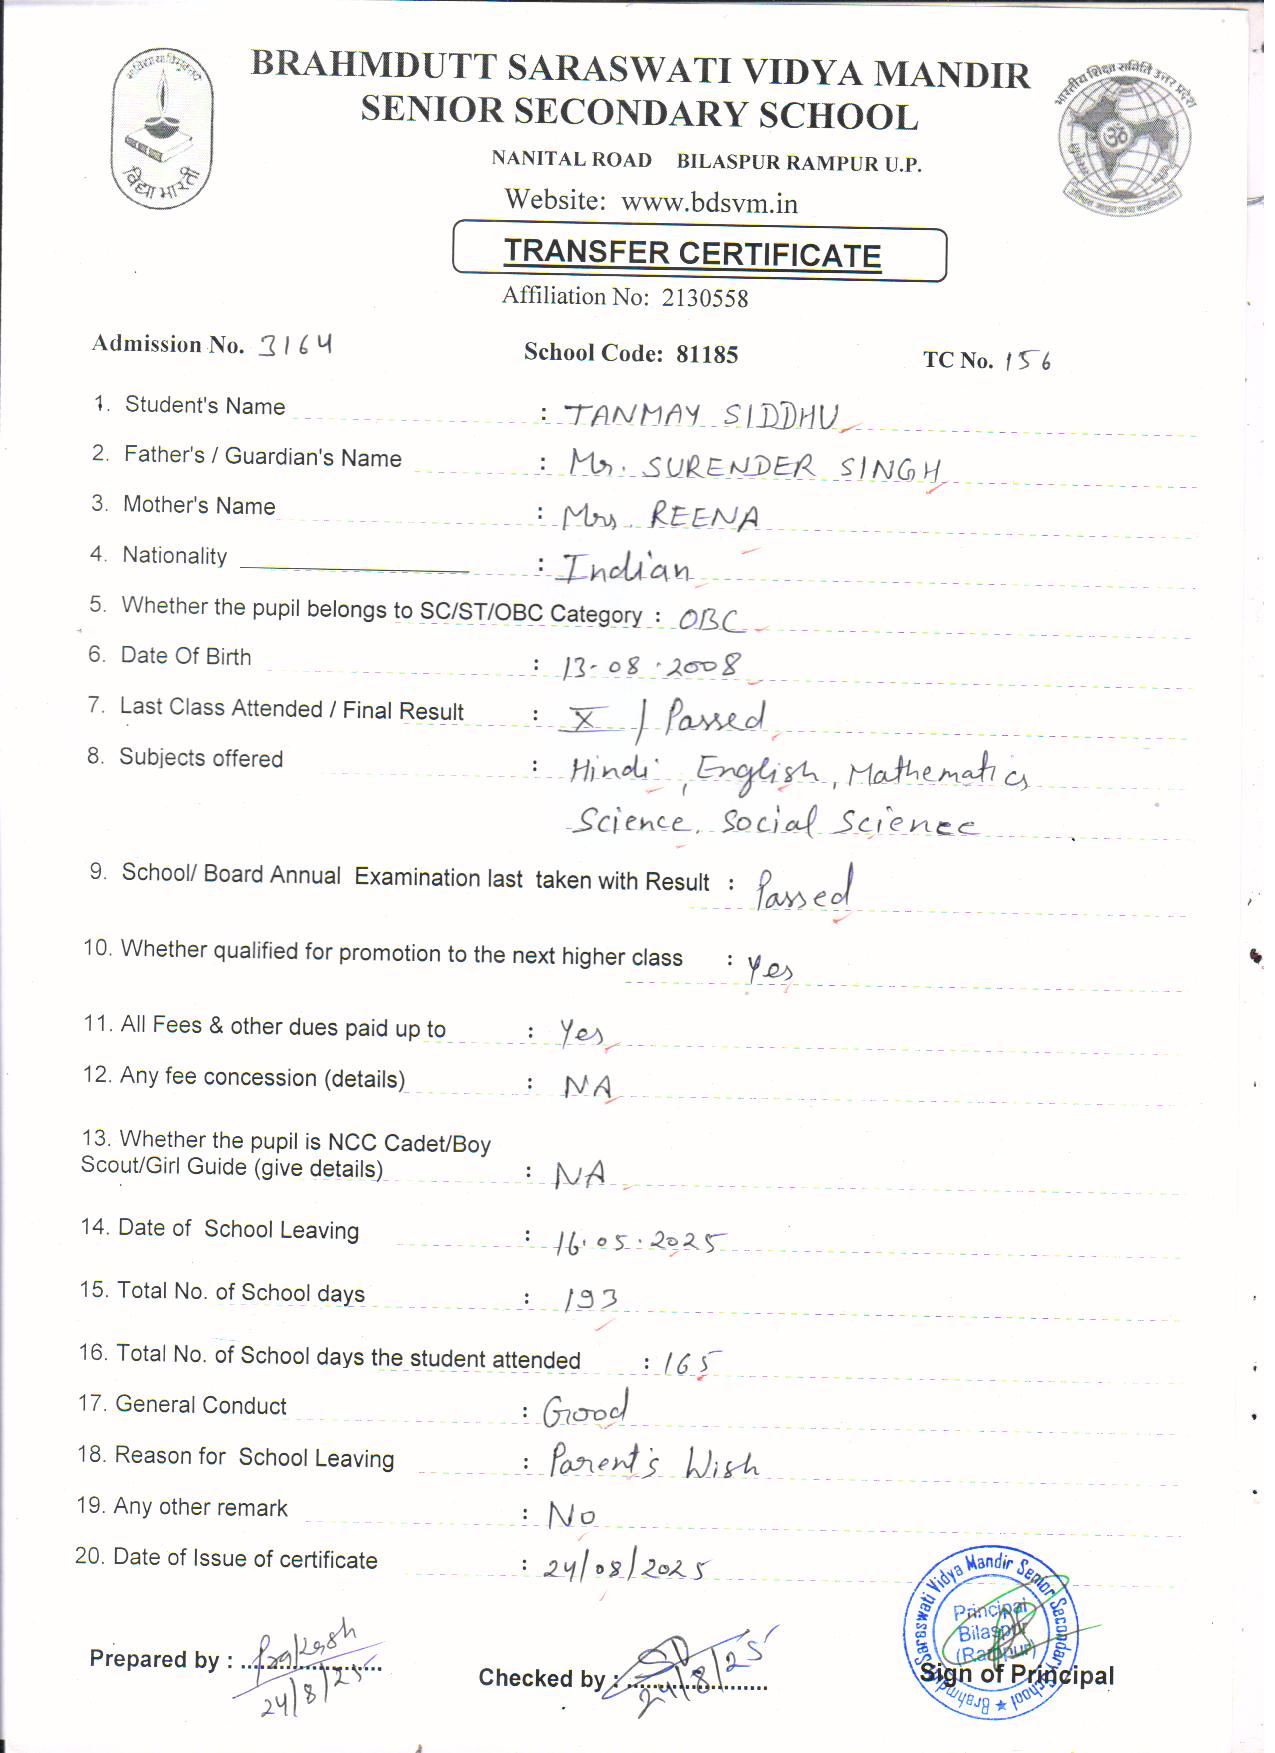 BRAHMDUTT SARASWATI VIDYA MANDIR
SENIOR SECONDARY SCHOOL
NANITAL ROAD BILASPUR RAMPUR U.P.
Website: www.bdsvm.in
विद्या भारती
भारतीय शिक्षा समिति उत्तर प्रदेश
ॐ
TRANSFER CERTIFICATE
Affiliation No: 2130558
Admission No. 3164 School Code: 81185 TC No. 156
1. Student's Name : TANMAY SIDDHU
2. Father's / Guardian's Name : Mr. SURENDER SINGH
3. Mother's Name : Mrs. REENA
4. Nationality : Indian
5. Whether the pupil belongs to SC/ST/OBC Category : OBC
6. Date Of Birth : 13-08-2008
7. Last Class Attended / Final Result : X / Passed
8. Subjects offered : Hindi, English, Mathematics
Science, Social Science
9. School/ Board Annual Examination last taken with Result : Passed
10. Whether qualified for promotion to the next higher class : Yes
11. All Fees & other dues paid up to : Yes
12. Any fee concession (details) : NA
13. Whether the pupil is NCC Cadet/Boy
Scout/Girl Guide (give details) : NA
14. Date of School Leaving : 16.05.2025
15. Total No. of School days : 193
16. Total No. of School days the student attended : 165
17. General Conduct : Good
18. Reason for School Leaving : Parent's Wish
19. Any other remark : No
20. Date of Issue of certificate : 24/08/2025
Brahmdutt Saraswati Vidya Mandir Senior Secondary School
Principal
Bilaspur
(Rampur)
Prepared by : Prakash
24/8/25
Checked by : 24/8/25
Sign of Principal